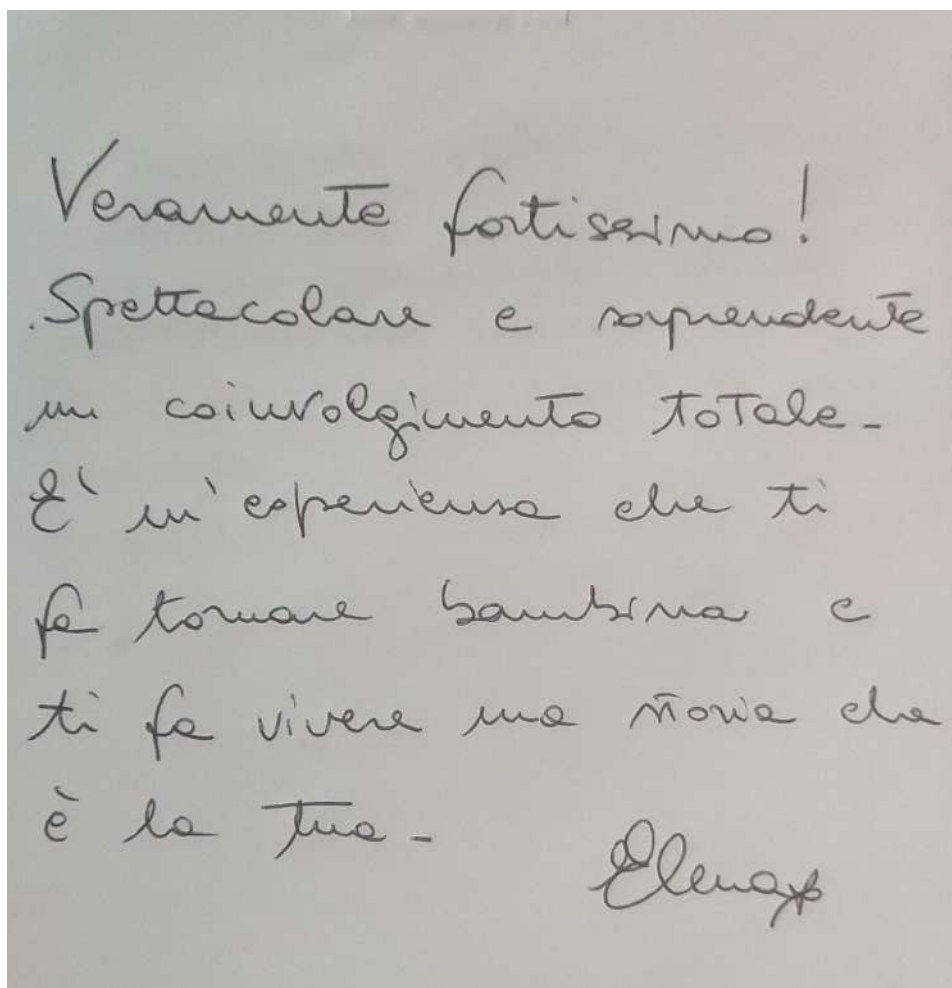 Veramente fortissimo!
Spettacolare e sorprendente
un coinvolgimento totale -
E' un'esperienza che ti
fa tornare bambina e
ti fa vivere una storia che
è la tua -
Elena